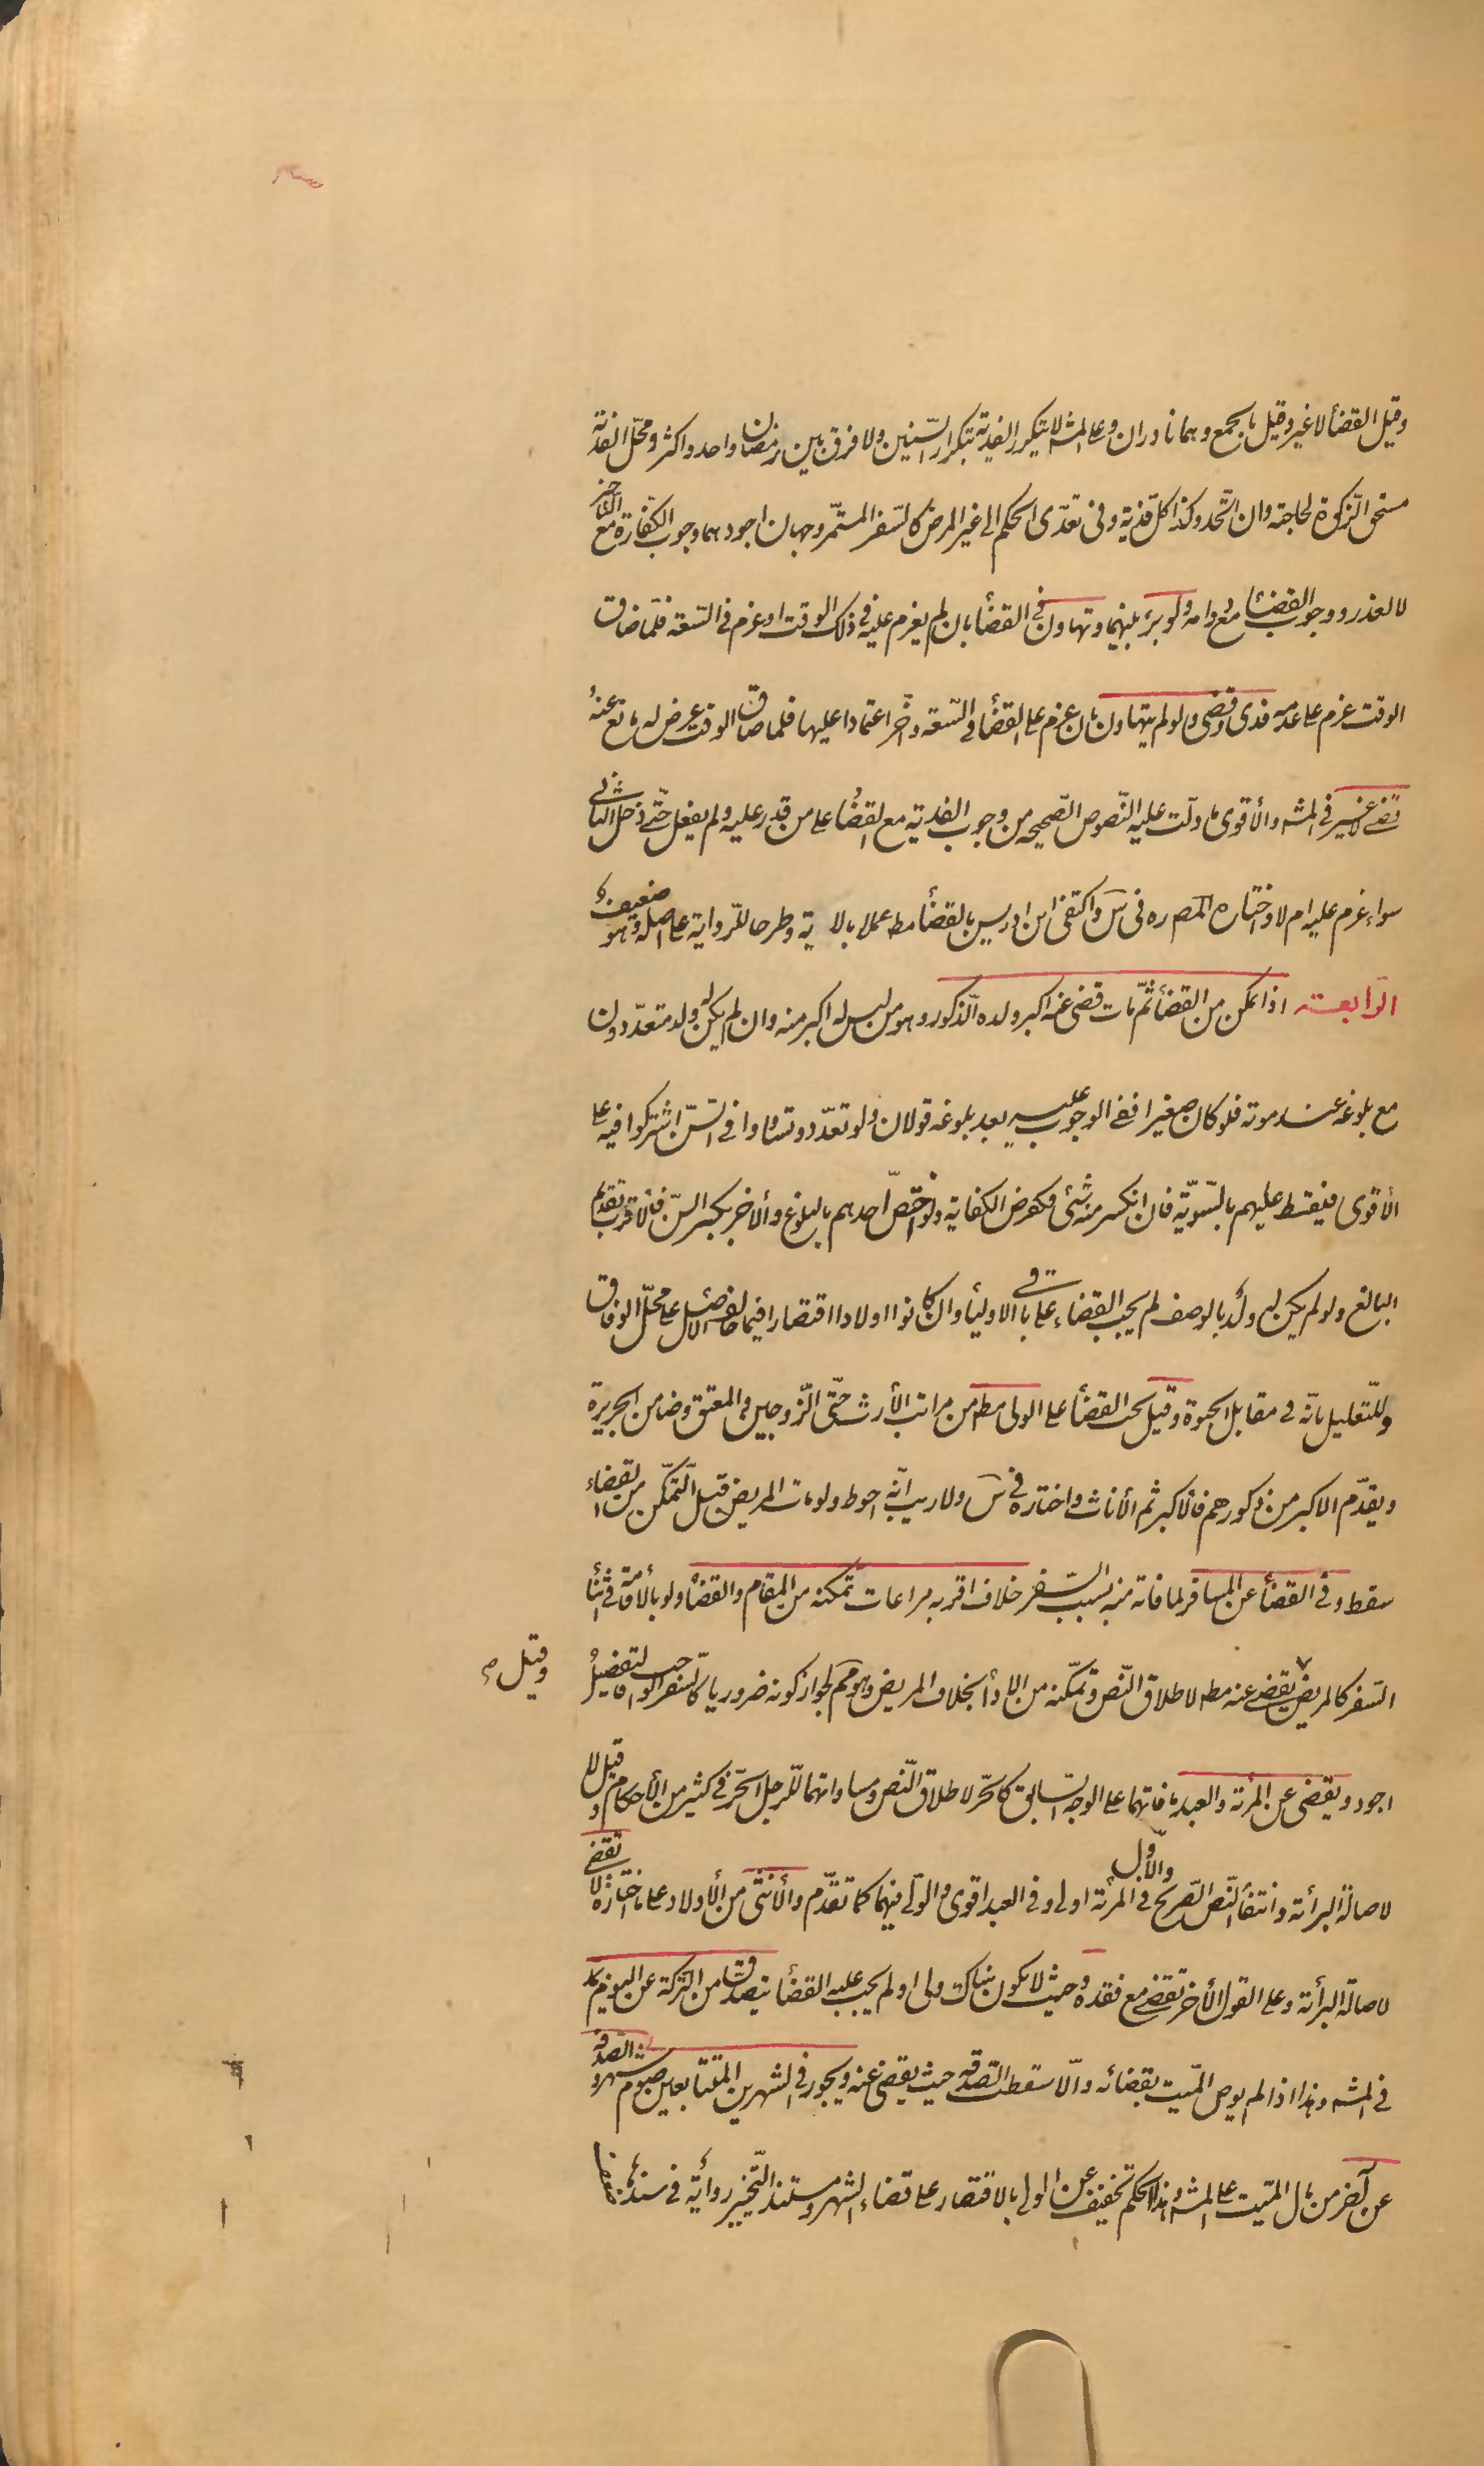 وقيل القضأ لا غير وقيل بالجمع وهما نادران وعلى المش لا يتكرر الفدية بتكرار السّنين ولا فرق بين رمضان واحد واكثر ومحلّ الفدية
مستحق الزّكوة لحاجته وان اتّحد وكذا كل فدية وفى تعدّى الحكم الى غير المرض كالسّفر المستمّر وجهان اجودهما وجوب الكفارة مع التأخير
لا لعذر ووجوب القضأ مع دوامه ولو برئ بينهما وتهاون فى القضأ بان لم يعزم عليه فى ذلك الوقت او عزم فى السّعة فلمّا ضاق
الوقت عزم على عدمه فدى وقضى ولو لم يتهاون بان عزم على القضأ فى السّعة واخّر اعتمادا عليها فلما ضاق الوقت عرض له مانع عنه
قضى لا غير فى المش والأقوى ما دلّت عليه النّصوص الصّحيحه من وجوب الفدية مع القضأ على من قدر عليه ولم يفعل حتّى دخل الثانى
سواء عزم عليه ام لا واختاره المصره فى س واكتفى ابن ادريس بالقضأ مط عملا بالاية وطرحا للرّواية على اصله وهو ضعيف
الرّابعته اذا تمكن من القضأ ثمّ مات قضى عنه اكبر ولده الذّكور وهو من ليس له اكبر منه وان لم يكن له ولد متعدّدون
مع بلوغه عند موته فلو كان صغيرا ففى الوجوب عليه بعد بلوغه قولان ولو تعدّدو تساووا فى السّن اشتركوا فيه على
الأقوى فيقسط عليهم بالسّويّة فان انكسر منه شئى فكفرض الكفاية ولو اختصّ احدهم بالبلوغ والأخر بكبر السّن فالأقرب تقديم
البالغ ولو لم يكن له ولد بالوصف لم يجب القضاء على باقى الاوليأ وان كانوا اولادا اقتصارا فيما خالف الاصل على محلّ الوفاق
وللتّعليل بانّه فى مقابل الحبوة وقيل يجب القضأ على الولى مط من مراتب الأرث حتّى الزّوجين والمعتق وضامن الجريرة
ويقدّم الاكبر من ذكورهم فالأكبر ثم الأناث واختاره فى س ولا ريب انّه احوط ولو مات المريض قبل التّمكّن من القضاء
سقط وفى القضأ عن المسافر لما فاته منه بسبب السّفر خلاف اقربه مراعات تمكنه من المقام والقضأ ولو بالأقامة فى اثنأ
السّفر كالمريض وقيل يقضى عنه مط لاطلاق النّص وتمكّنه من الادأ بخلاف المريض وهو مم لجواز كونه ضروريا كالسّفر الواجب فالتفصيل
اجود ويقضى عن المرئة والعبد ما فاتهما على الوجه السّابق كالحّر لاطلاق النّص ومساواتهما للرّجل الحّر فى كثير من الأحكام وقيل لا
لاصالة البرائة وانتفأ النّص الصّريح والأوّل فى المرئة اولى وفى العبد اقوى والولى فيهما كما تقدّم والأنثى من الأولاد على ما اختاره لا تقضى
لاصالة البرأئة وعلى القول الأخر تقضى مع فقده وحيث لا يكون هناك ولى او لم يجب عليه القضأ يتصدق من التركة عن اليوم بمد
فى المش وهذا اذا لم يوص الميّت بقضائه والاّ سقطت الصّدقه حيث يقضى عنه ويجوز فى الشهرين المتتابعين صوم شهر والصدقة
عن آخر من مال الميّت على المش وهذا الحكم تخفيف عن الولى بالاقتصار على قضاء الشهر ومستند التّخيير رواية فى سندها